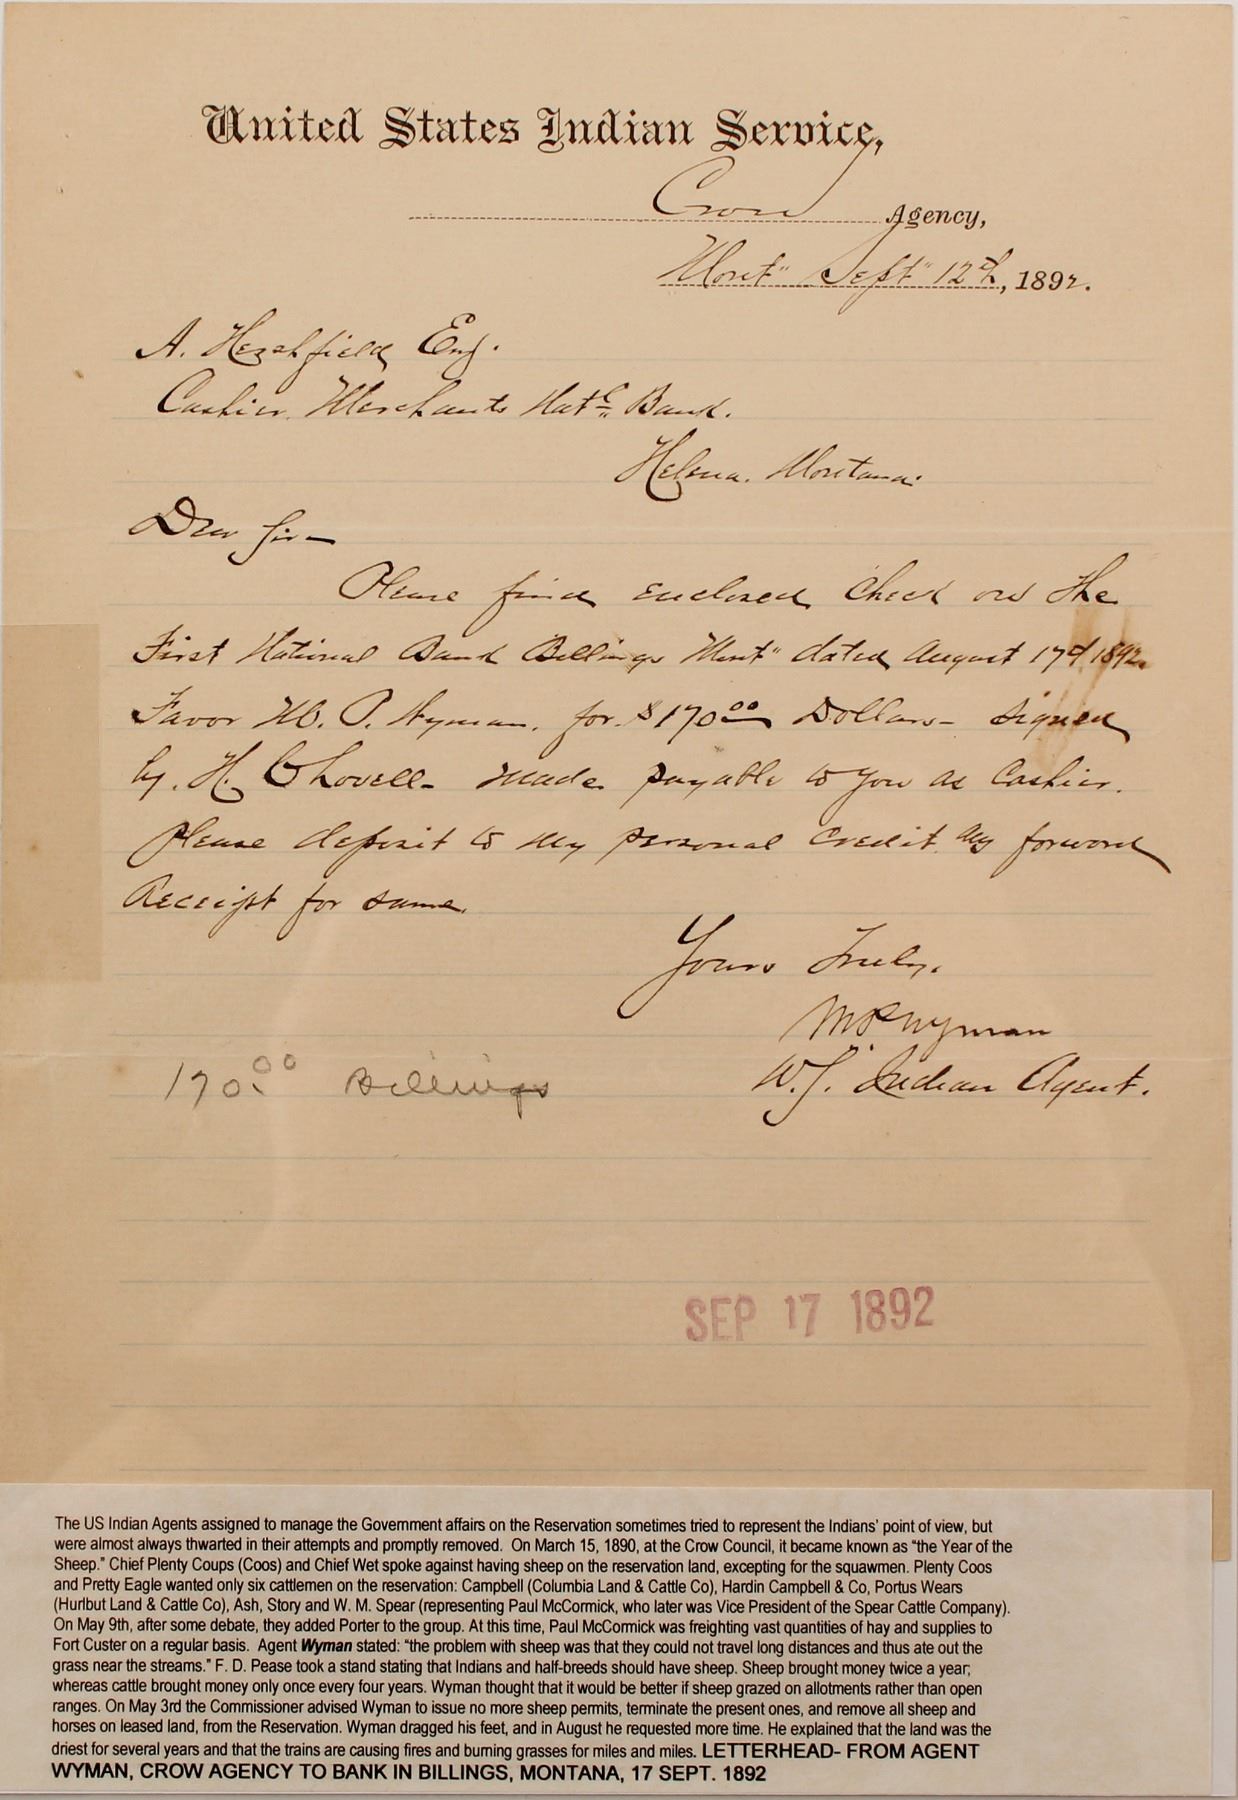 United States Indian Service,
Crow Agency,
Mont" Sept" 12th, 1892.
A. Hershfield Esq.
Cashier Merchants Natl Bank.
Helena. Montana.
Dear Sir—
Please find enclosed Check on the
First National Bank Billings Mont" dated August 17th 1892.
Favor M. P. Wyman. for $170.00 Dollars— signed
by. H. C Lovell— made payable to you as Cashier.
Please deposit to my personal credit and forward
Receipt for same.
Yours Truly.
M P Wyman
U. S. Indian Agent.
170.00 Billings
SEP 17 1892
The US Indian Agents assigned to manage the Government affairs on the Reservation sometimes tried to represent the Indians' point of view, but
were almost always thwarted in their attempts and promptly removed. On March 15, 1890, at the Crow Council, it became known as "the Year of the
Sheep." Chief Plenty Coups (Coos) and Chief Wet spoke against having sheep on the reservation land, excepting for the squawmen. Plenty Coos
and Pretty Eagle wanted only six cattlemen on the reservation: Campbell (Columbia Land & Cattle Co), Hardin Campbell & Co, Portus Wears
(Hurlbut Land & Cattle Co), Ash, Story and W. M. Spear (representing Paul McCormick, who later was Vice President of the Spear Cattle Company).
On May 9th, after some debate, they added Porter to the group. At this time, Paul McCormick was freighting vast quantities of hay and supplies to
Fort Custer on a regular basis. Agent Wyman stated: "the problem with sheep was that they could not travel long distances and thus ate out the
grass near the streams." F. D. Pease took a stand stating that Indians and half-breeds should have sheep. Sheep brought money twice a year;
whereas cattle brought money only once every four years. Wyman thought that it would be better if sheep grazed on allotments rather than open
ranges. On May 3rd the Commissioner advised Wyman to issue no more sheep permits, terminate the present ones, and remove all sheep and
horses on leased land, from the Reservation. Wyman dragged his feet, and in August he requested more time. He explained that the land was the
driest for several years and that the trains are causing fires and burning grasses for miles and miles. LETTERHEAD- FROM AGENT
WYMAN, CROW AGENCY TO BANK IN BILLINGS, MONTANA, 17 SEPT. 1892